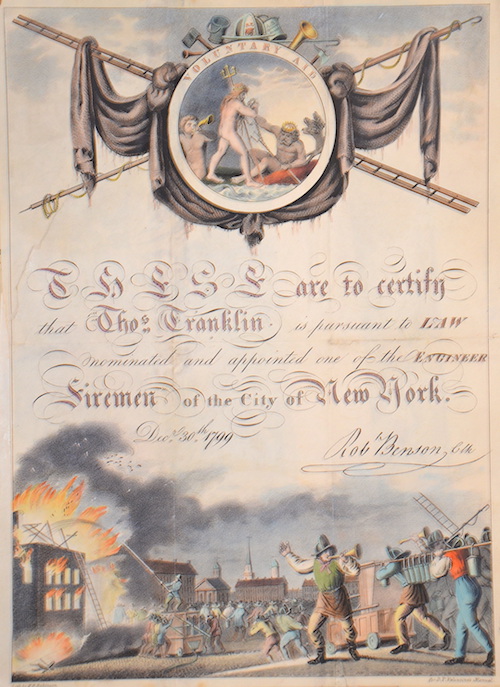 VOLUNTARY AID
THESE are to certify
that Thos. Franklin is pursuant to LAW
nominated and appointed one of the ENGINEER
Firemen of the City of New York.
Decr. 30.th 1799
Robt. Benson, Clk